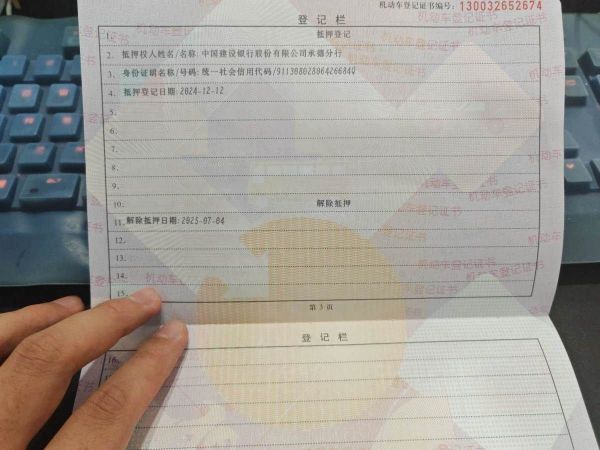 机动车登记证书编号: 130032652674
登记栏
1. 抵押登记
2. 抵押权人姓名/名称:中国建设银行股份有限公司承德分行
3. 身份证明名称/号码:统一社会信用代码/91130802806426684Q
4. 抵押登记日期:2024-12-12
5.
6.
7.
8.
9.
10. 解除抵押
11. 解除抵押日期:2025-07-04
12.
13.
14.
15.
第3页
登记栏
16.